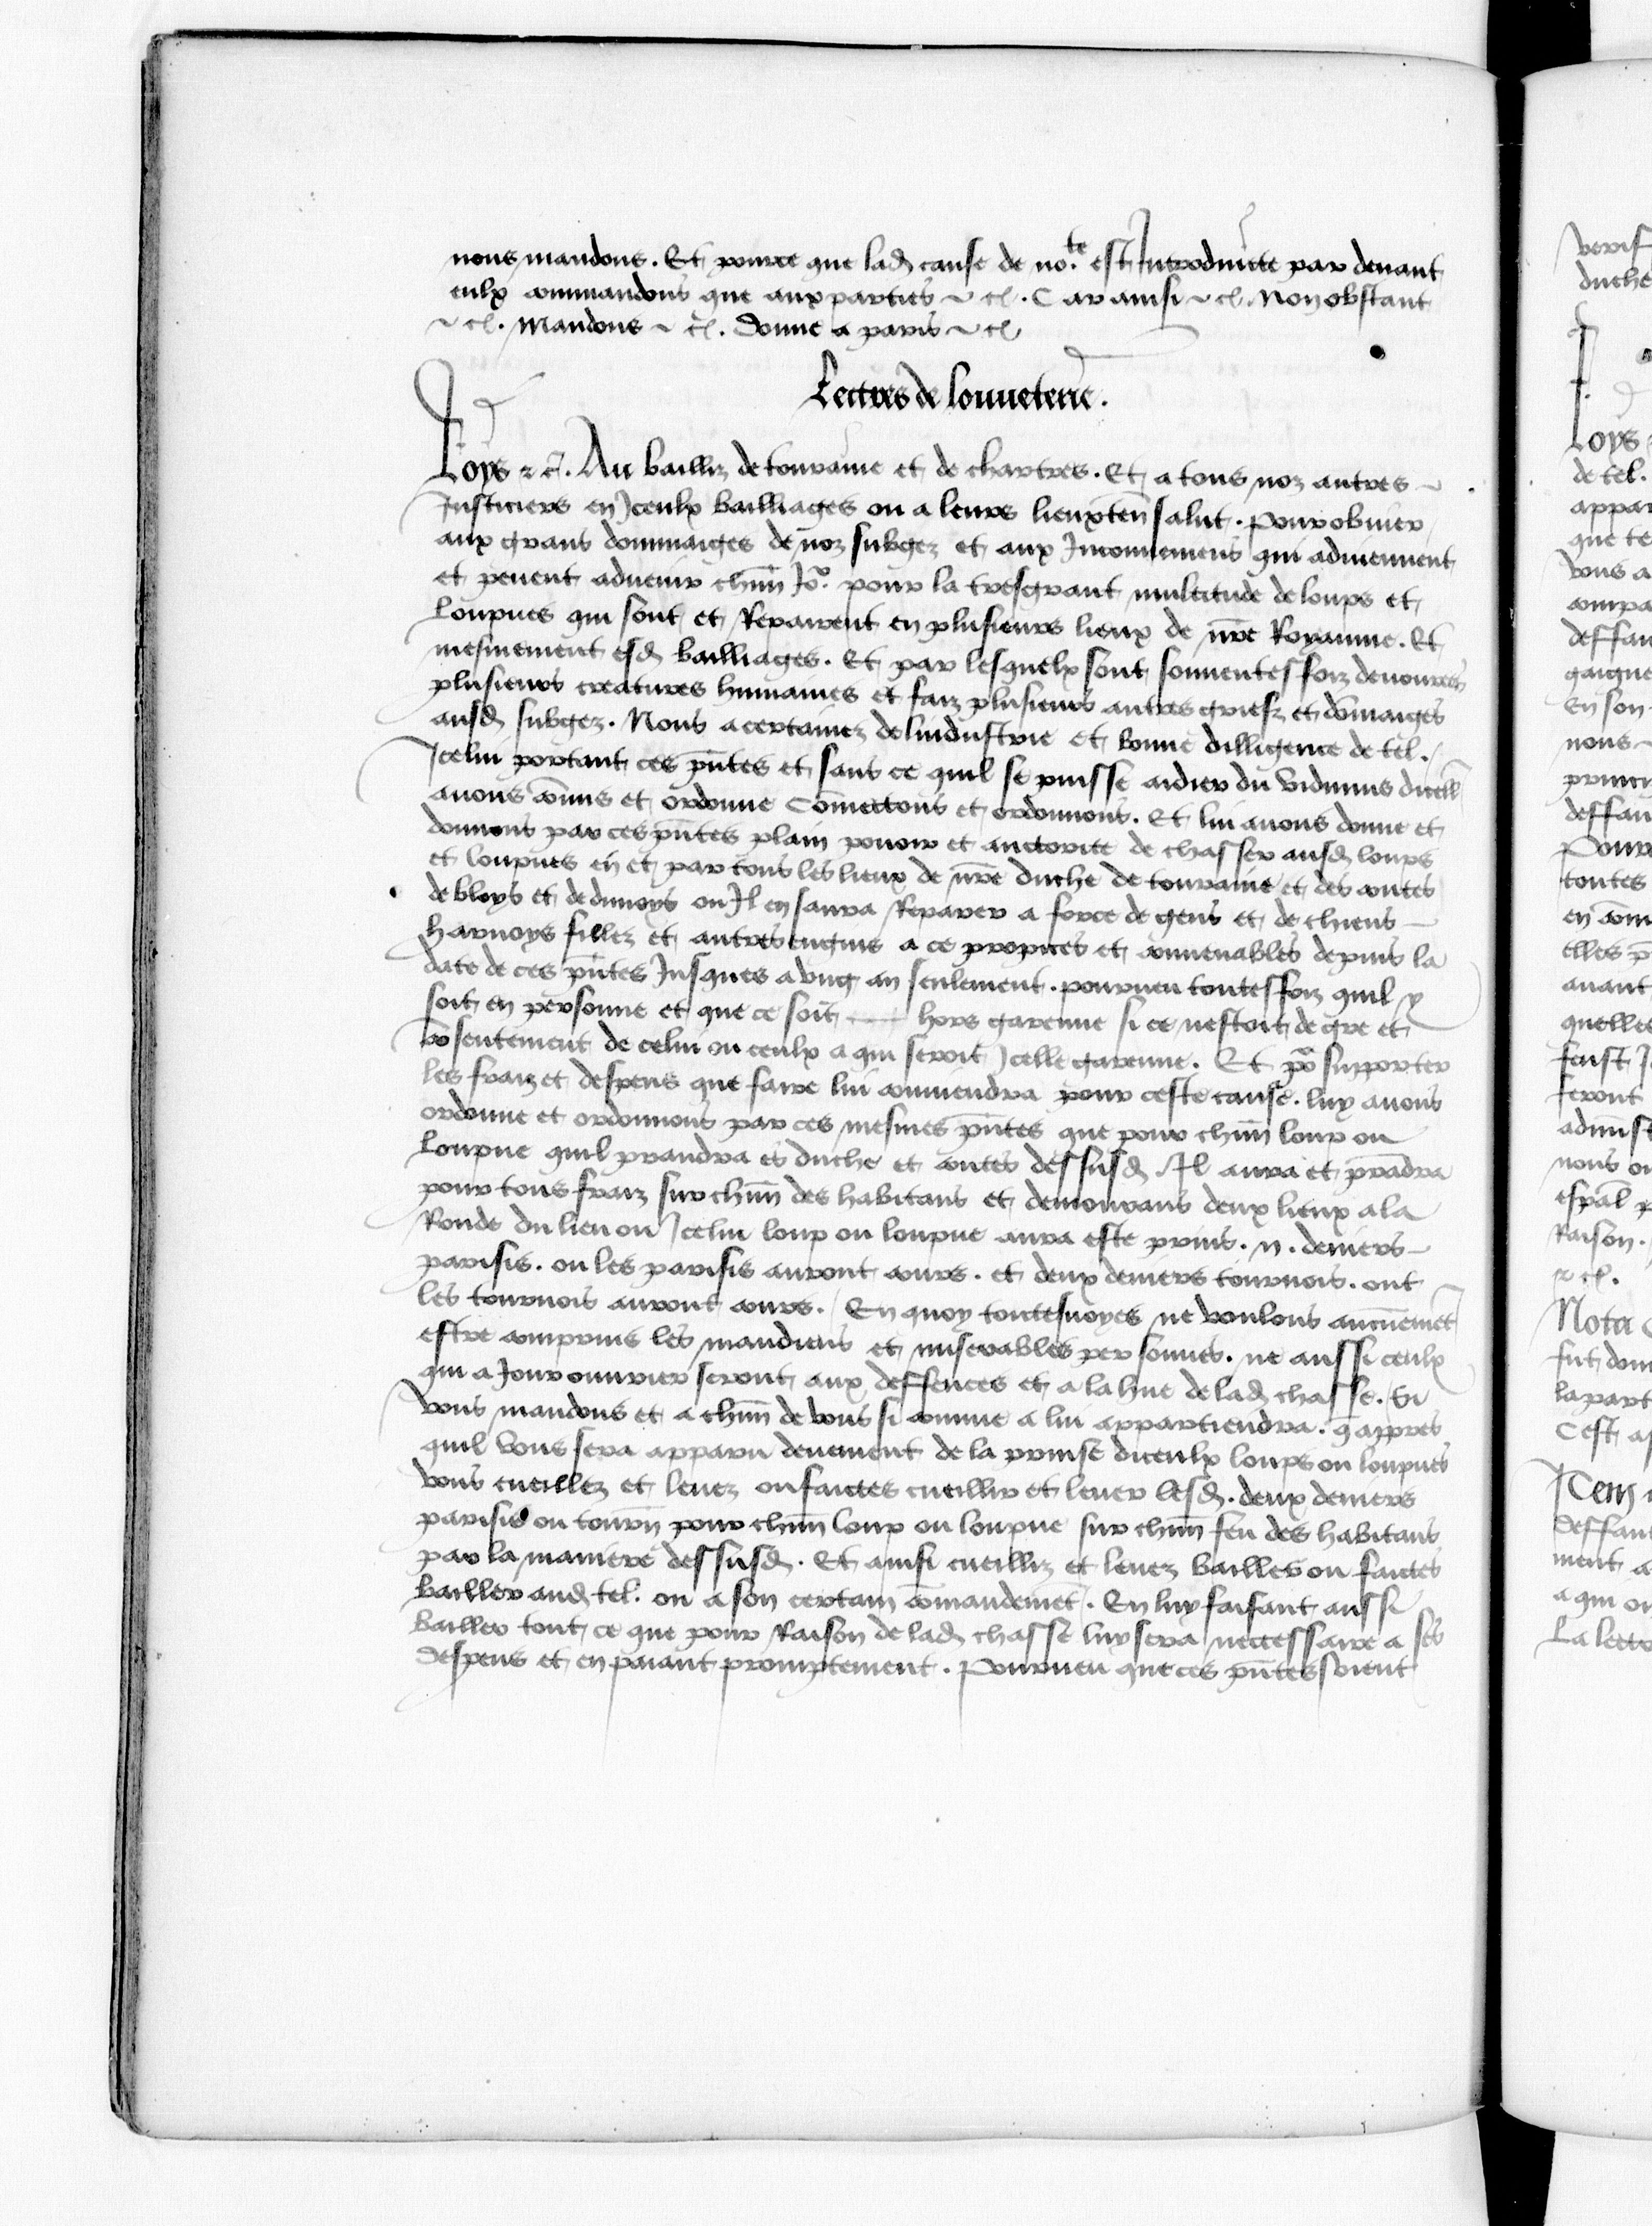 nous mandons. Et pource que lad cause de no.te est Introduicte par devant
eulx commandons que aux parties ⁊ c̃. Car ainsi ⁊ c̃. Non obstant
⁊ c̃. Mandons ⁊ c̃. donne a paris ⁊ c̃
Lectres de louueterie.
Loys ⁊ c̃. Au bailliz de touraine et de chartres. Et a tous noz autres
Justiciers en Iceulx bailliages ou a leurs lieuxten̄ salut. Pour obuier
aux grans dommaiges de noz subgez et aux Inconueniens qui aduiennent
et peuent aduenir chūn Jo.r pour la tresgrant multitude de loups et
loupues qui sont et Repairent en plusieurs lieux de nr̄e Royaume. Et
mesmement esd bailliages. Et par lesquelx sont souuentes foiz deuourees
plusieurs creatures humaines et faiz plusieurs autres griefz et dōmaiges
ausd subgez. Nous acertainez de lindustrie et bonne dilligence de tel.
Icelui portant ces pn̄tes et sans ce quil se puisse aidier du vidimus dicell
auons cōmis et ordonne Cōmectons et ordonnons. Et lui auons donne et
donnons par ces pn̄tes plain pouoir et auctorite de chasser ausd loups
et loupues en et par tous les lieux de nr̄e duche de touraine et des contes
de bloys et de dunoys ou Il en saura Reparer a force de gens et de chiens
harnoys fillez et autres engins a ce propices et conuenables depuis la
date de ces pn̄tes Jusques a vng an seulement. pourueu toutesfoiz quil y
soit en personne et que ce soit hors garenne si ce nestoit de gre et
cōsentement de celui ou ceulx a qui seroit Icelle garenne. Et po.r supporter
les fraiz et despens que faire lui conuiendra pour ceste cause. luy auons
ordonne et ordonnons par ces mesmes pn̄tes que pour chūn loup ou
loupue quil prandra es duche et contes dessusd Il aura et prādra
pour tous fraiz sur chūn des habitans et demourans deux lieux a la
Ronde du lieu ou Icelui loup ou loupue aura este prins. II. deniers
parisis. ou les parisis auront cours. et deux deniers tournois. ont
les tournois auront cours. En quoy toutesuoyes ne voulons aucunemēt
estre comprins les mandiens et miserables personnes. ne aussi ceulx
qui a Jour ouurier seront aux deffences et a la hue de lad chasse. Si
vous mandons et a chūn de vous si comme a lui appartiendra. q̄ apres
quil vous sera apparu deuement de la prinse diceulx loups ou loupues
vous cueillez et leuez ou faictes cueillir et leuer lesd. deux deniers
parisis ou tourn̄ pour chūn loup ou loupue sur chūn feu des habitans
par la maniere dessusd. Et ainsi cueilliz et leuez bailler ou faictes
bailler aud tel. ou a son certain cōmandemēt. En luy faisant aussi
bailler tout ce que pour Raison de lad chasse luy sera neccessaire a ses
despens et en paiant promptement. Pourueu que ces pn̄tes soient